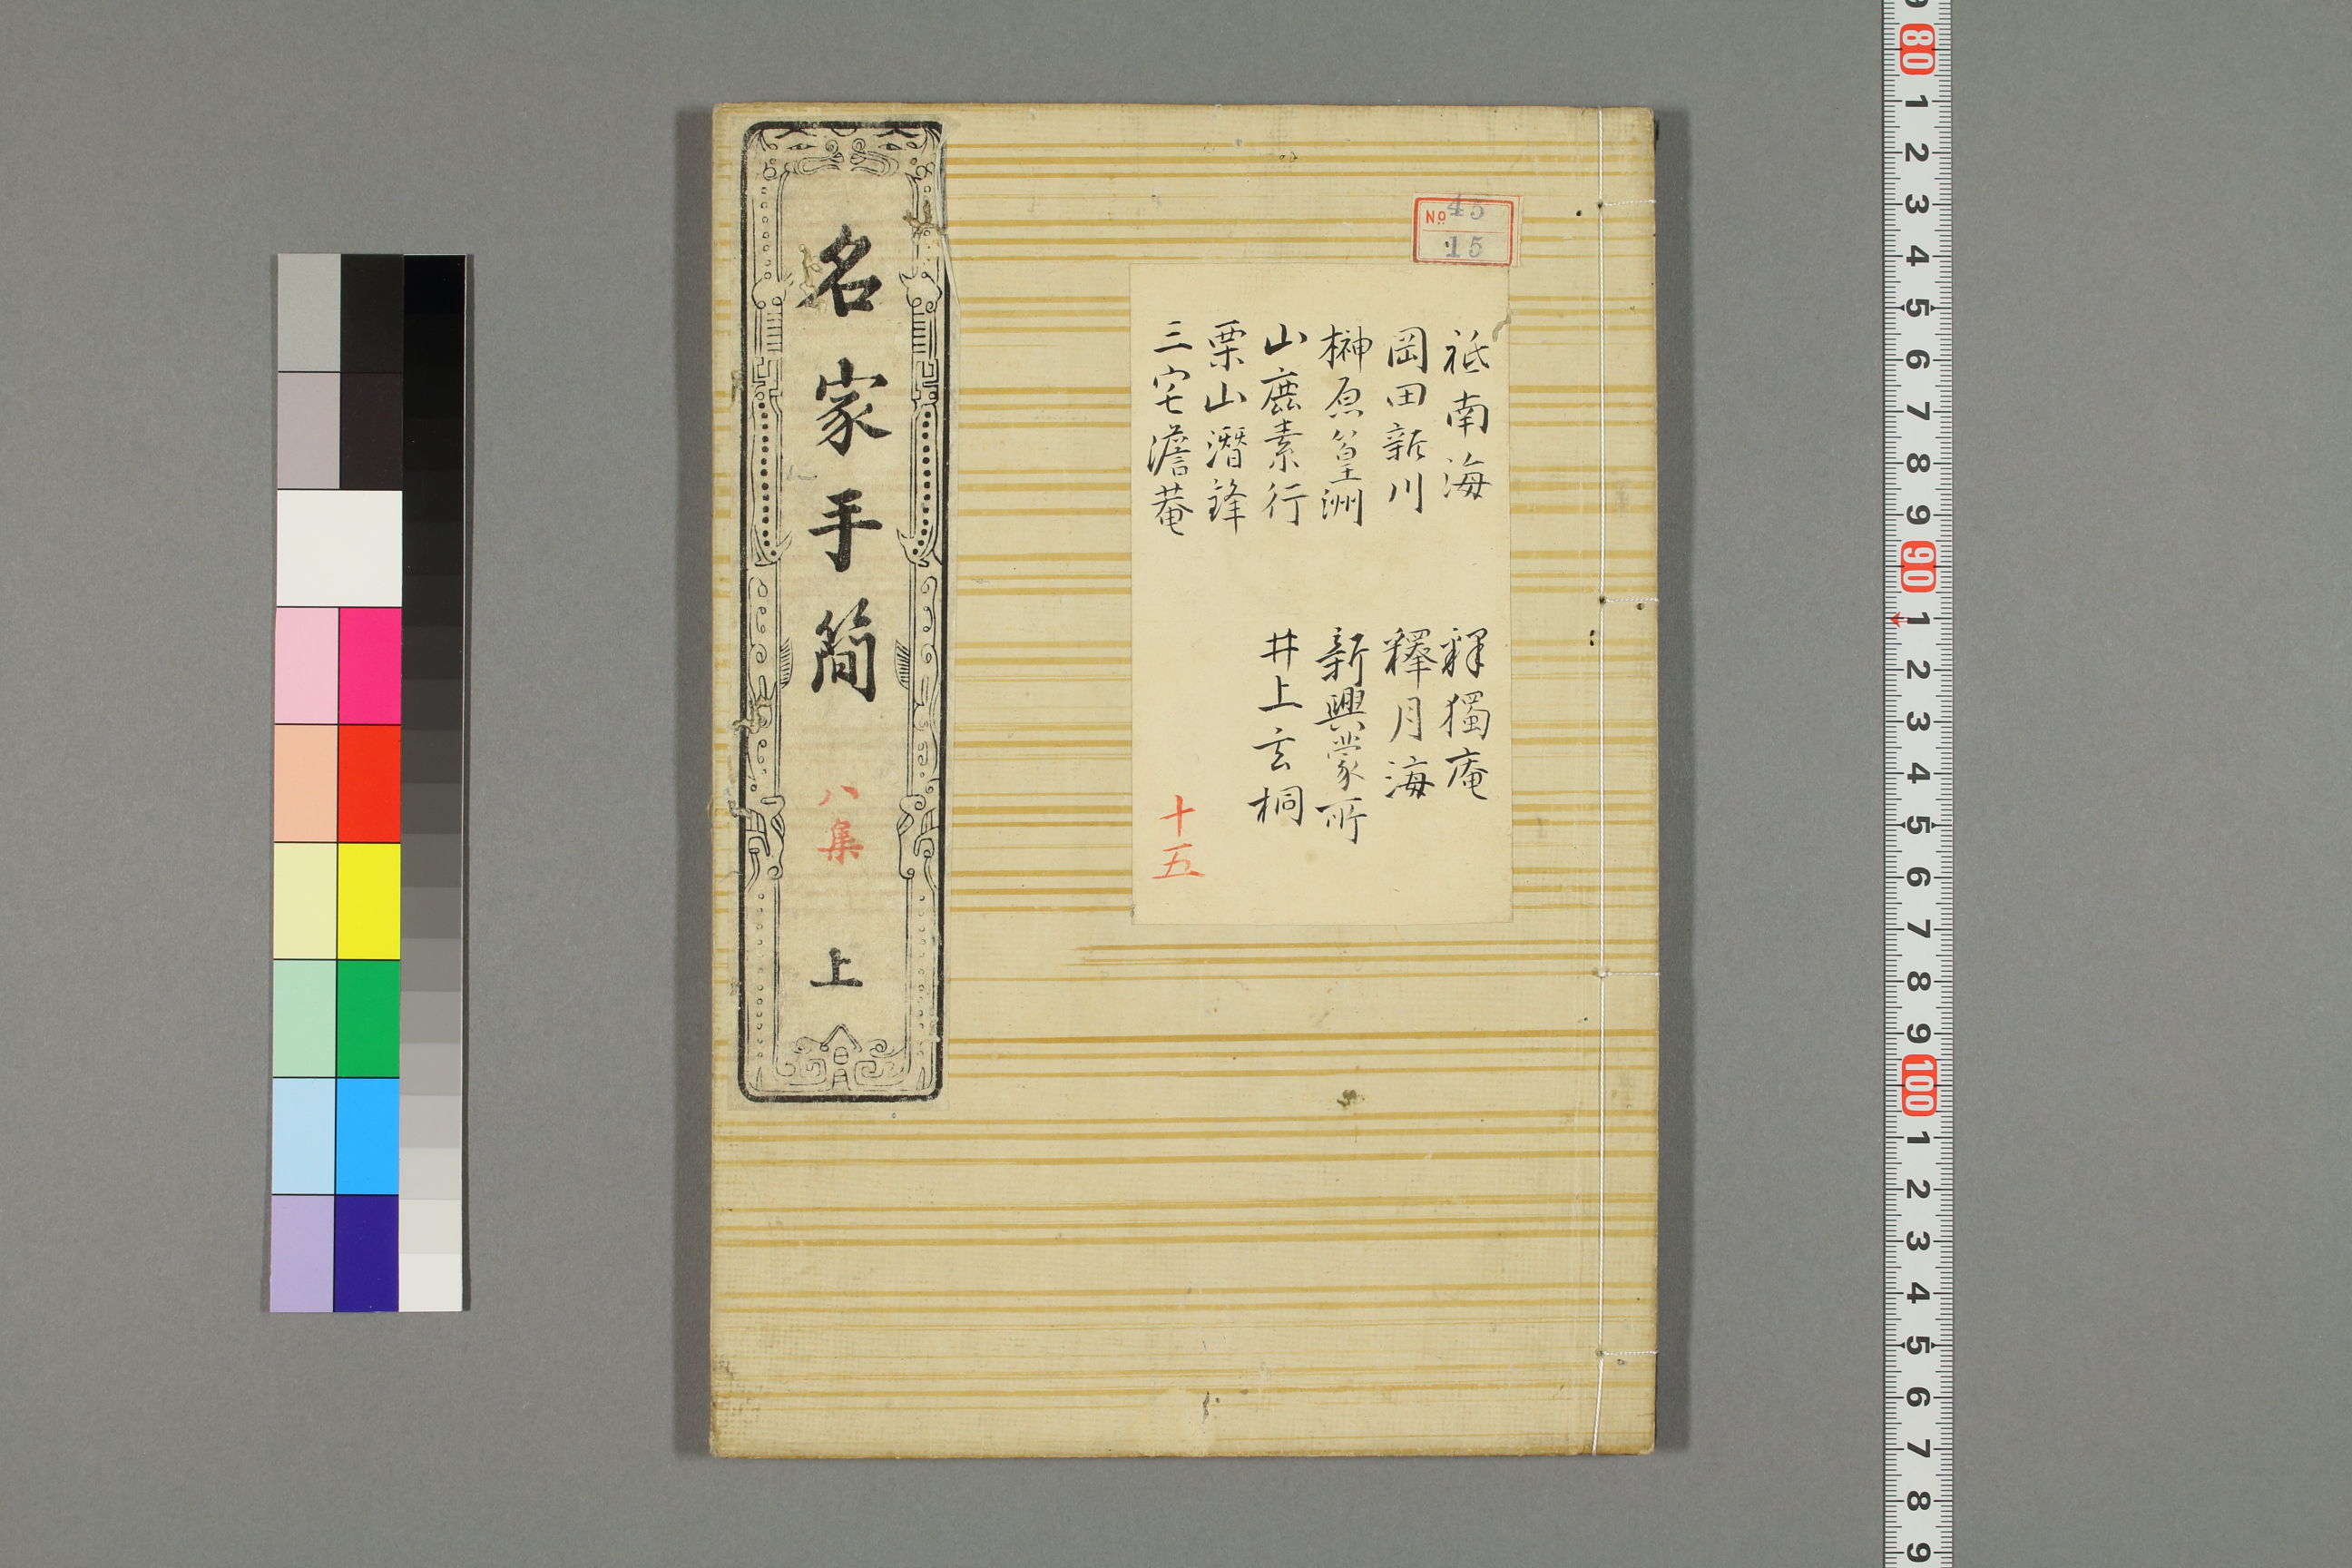 名家手簡 八集 上
No 45
15
祗南海 釋獨庵
岡田新川 釋月海
榊原篁洲 新興蒙所
山鹿素行 井上玄桐
栗山潛鋒
三宅澹菴
十五
9 80 1 2 3 4 5 6 7 8 9 90 1 2 3 4 5 6 7 8 9 100 1 2 3 4 5 6 7 8 9